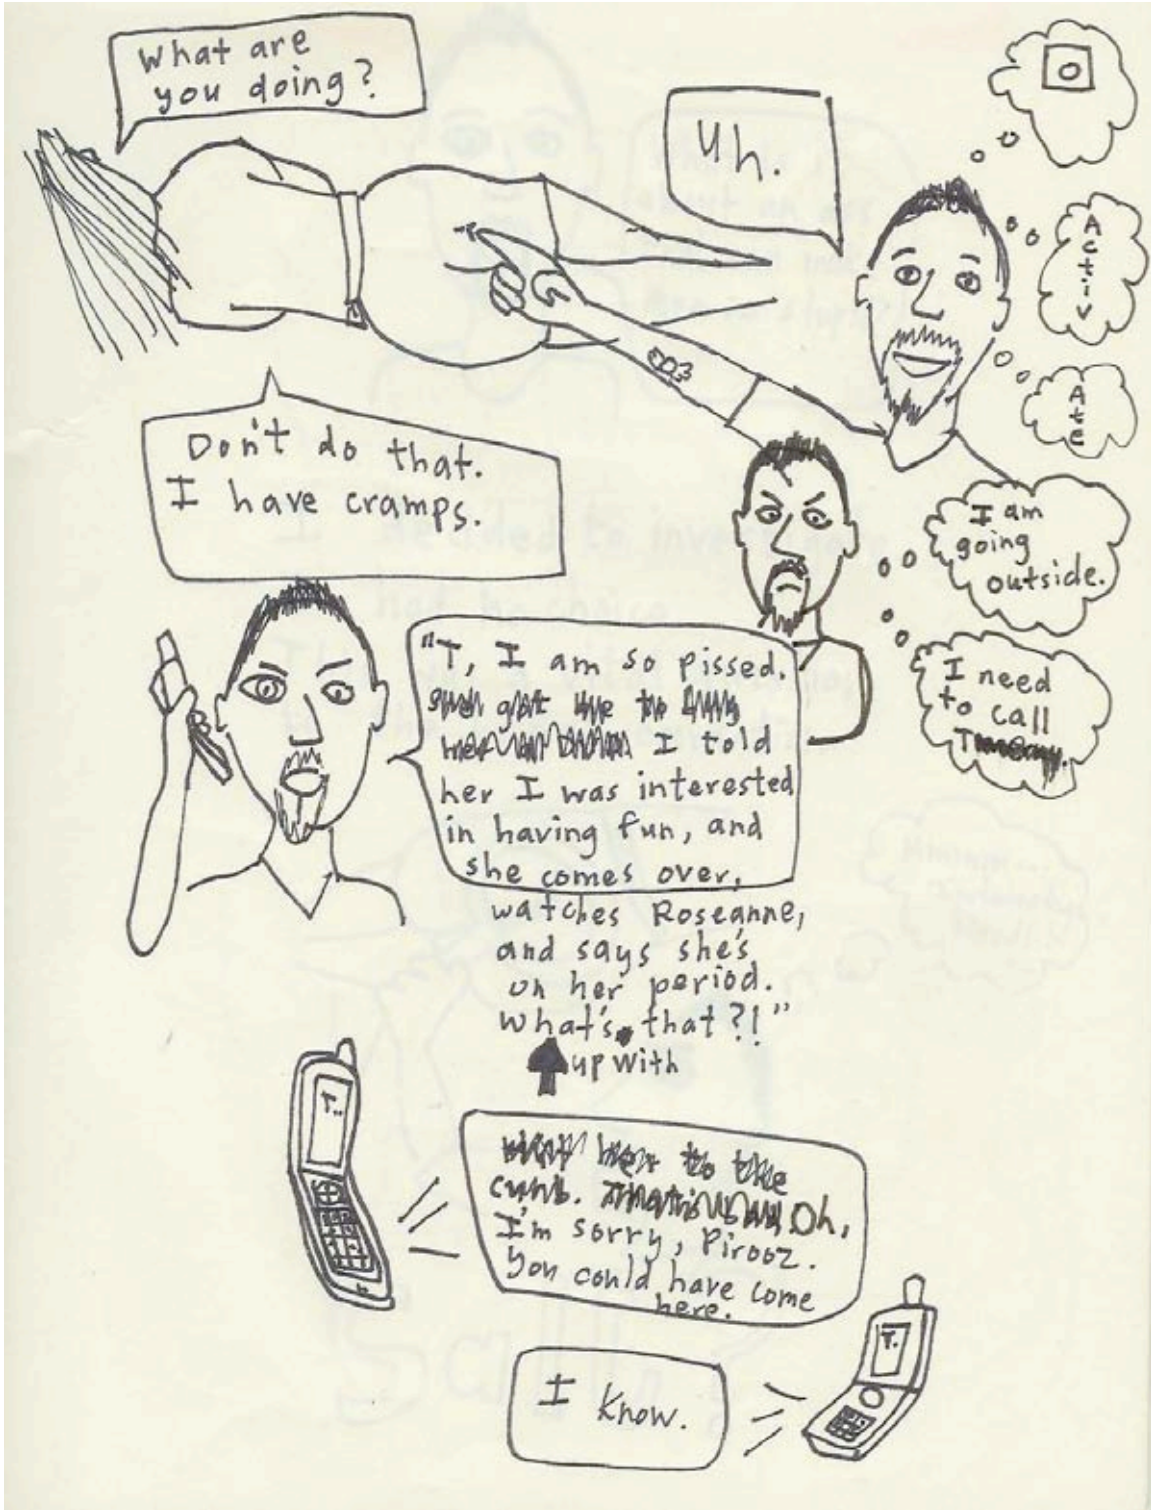 What are
you doing?
Uh.
O
Activ
Ate
Don't do that.
I have cramps.
I am
going
outside.
I need
to call
T
"T, I am so pissed.
I told
her I was interested
in having fun, and
she comes over,
watches Roseanne,
and says she's
on her period.
What's that?!"
up with
T..
to the
Oh,
I'm sorry, Pirooz.
You could have come
here.
T.
I know.